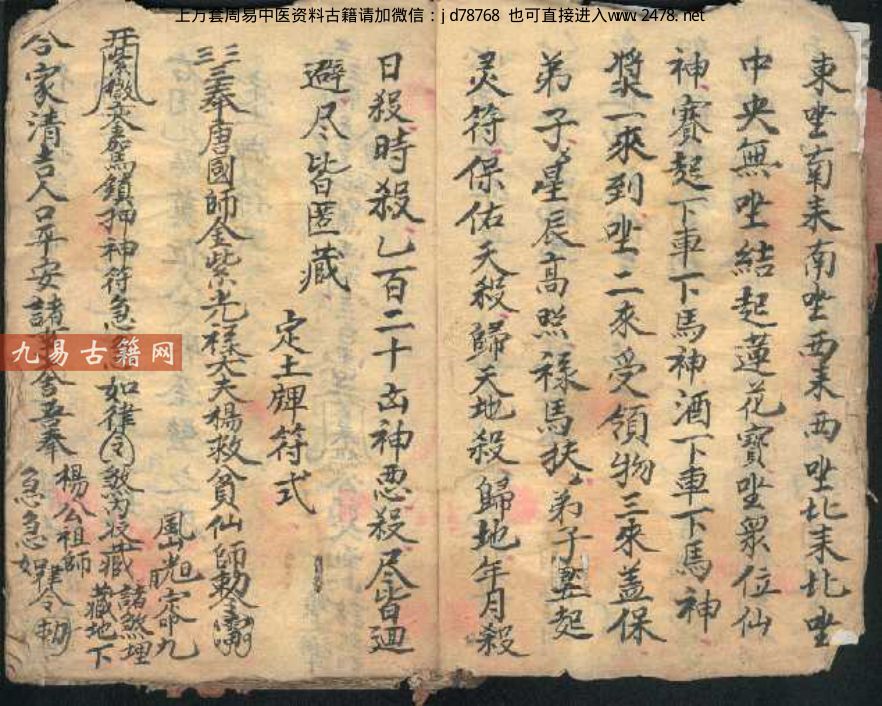 上方套周易中医资料古籍请加微信：jd78768 也可直接进入www.2478.net
東坐南来南坐西来西坐北来北坐
中央無坐結起蓮花寶坐眾位仙
神賽起下車下馬神酒下車下馬神
漿一來到坐二來受領物三來盖保
弟子星辰高照祿馬扶弟子竪起
灵符保佑天殺歸天地殺歸地年月殺
日殺時殺乙百二十凶神恶殺尽皆廻
避尽皆匿藏
定土牌符式
三三三奉唐國師金紫光禄大夫楊救貧仙師勅令
紫微鎖押神符急急如律令煞为収藏
合家清吉人口平安諸舍吾奉
楊公祖師
諸煞埋
藏地下
急急如律令勅
九易古籍网